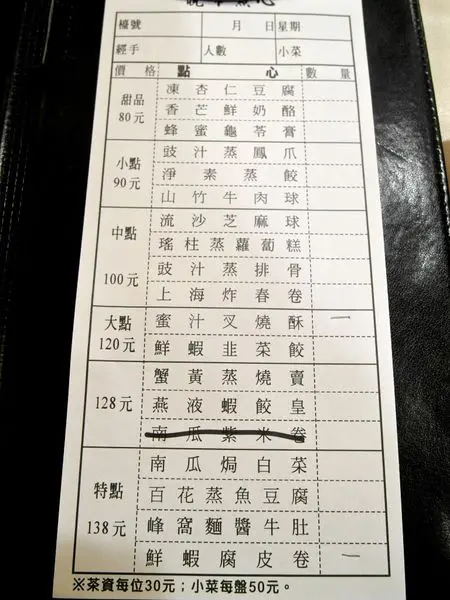 檯號 月 日 星期
經手 人數 小菜
價格 點心 數量
甜品 80元
凍杏仁豆腐
香芒鮮奶酪
蜂蜜龜苓膏
小點 90元
豉汁蒸鳳爪
淨素蒸餃
山竹牛肉球
中點 100元
流沙芝麻球
瑤柱蒸蘿蔔糕
豉汁蒸排骨
上海炸春卷
大點 120元
蜜汁叉燒酥 一
鮮蝦韭菜餃
128元
蟹黃蒸燒賣
燕液蝦餃皇
南瓜紫米卷
特點 138元
南瓜焗白菜
百花蒸魚豆腐
峰窩麵醬牛肚
鮮蝦腐皮卷 一
※茶資每位30元；小菜每盤50元。